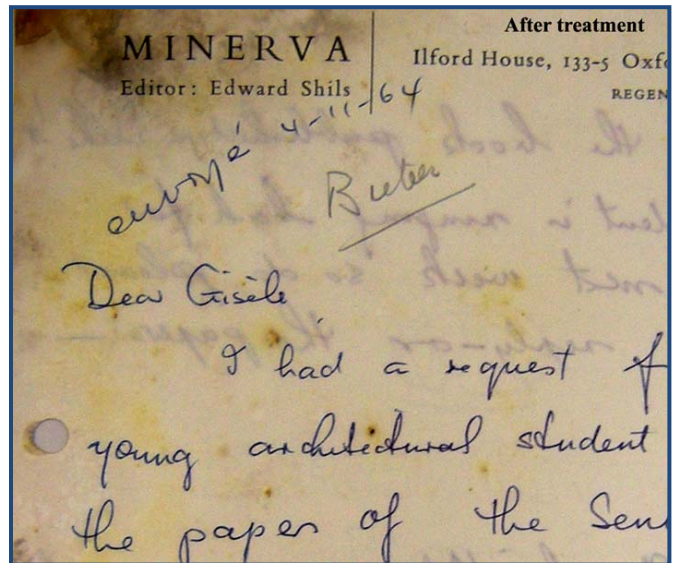 After treatment
MINERVA
Editor: Edward Shils
Ilford House, 133-5 Oxfo
REGEN
envoyé 4-11-64
Dear Gisèle,
I had a request f
young architectural student
the paper of the Sem